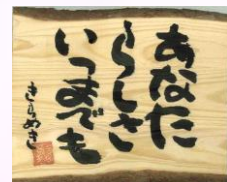 あなた
らしさ
いつまでも
きらめき